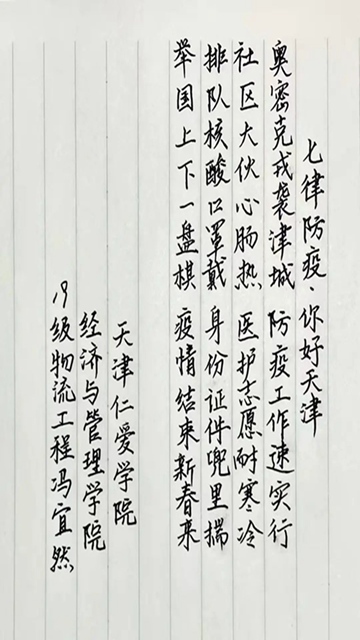 七律防疫·你好天津
奥密克戎袭津城 防疫工作速实行
社区大伙心肠热 医护志愿耐寒冷
排队核酸口罩戴 身份证件兜里揣
举国上下一盘棋 疫情结束新春来
天津仁爱学院
经济与管理学院
19级物流工程冯宜然